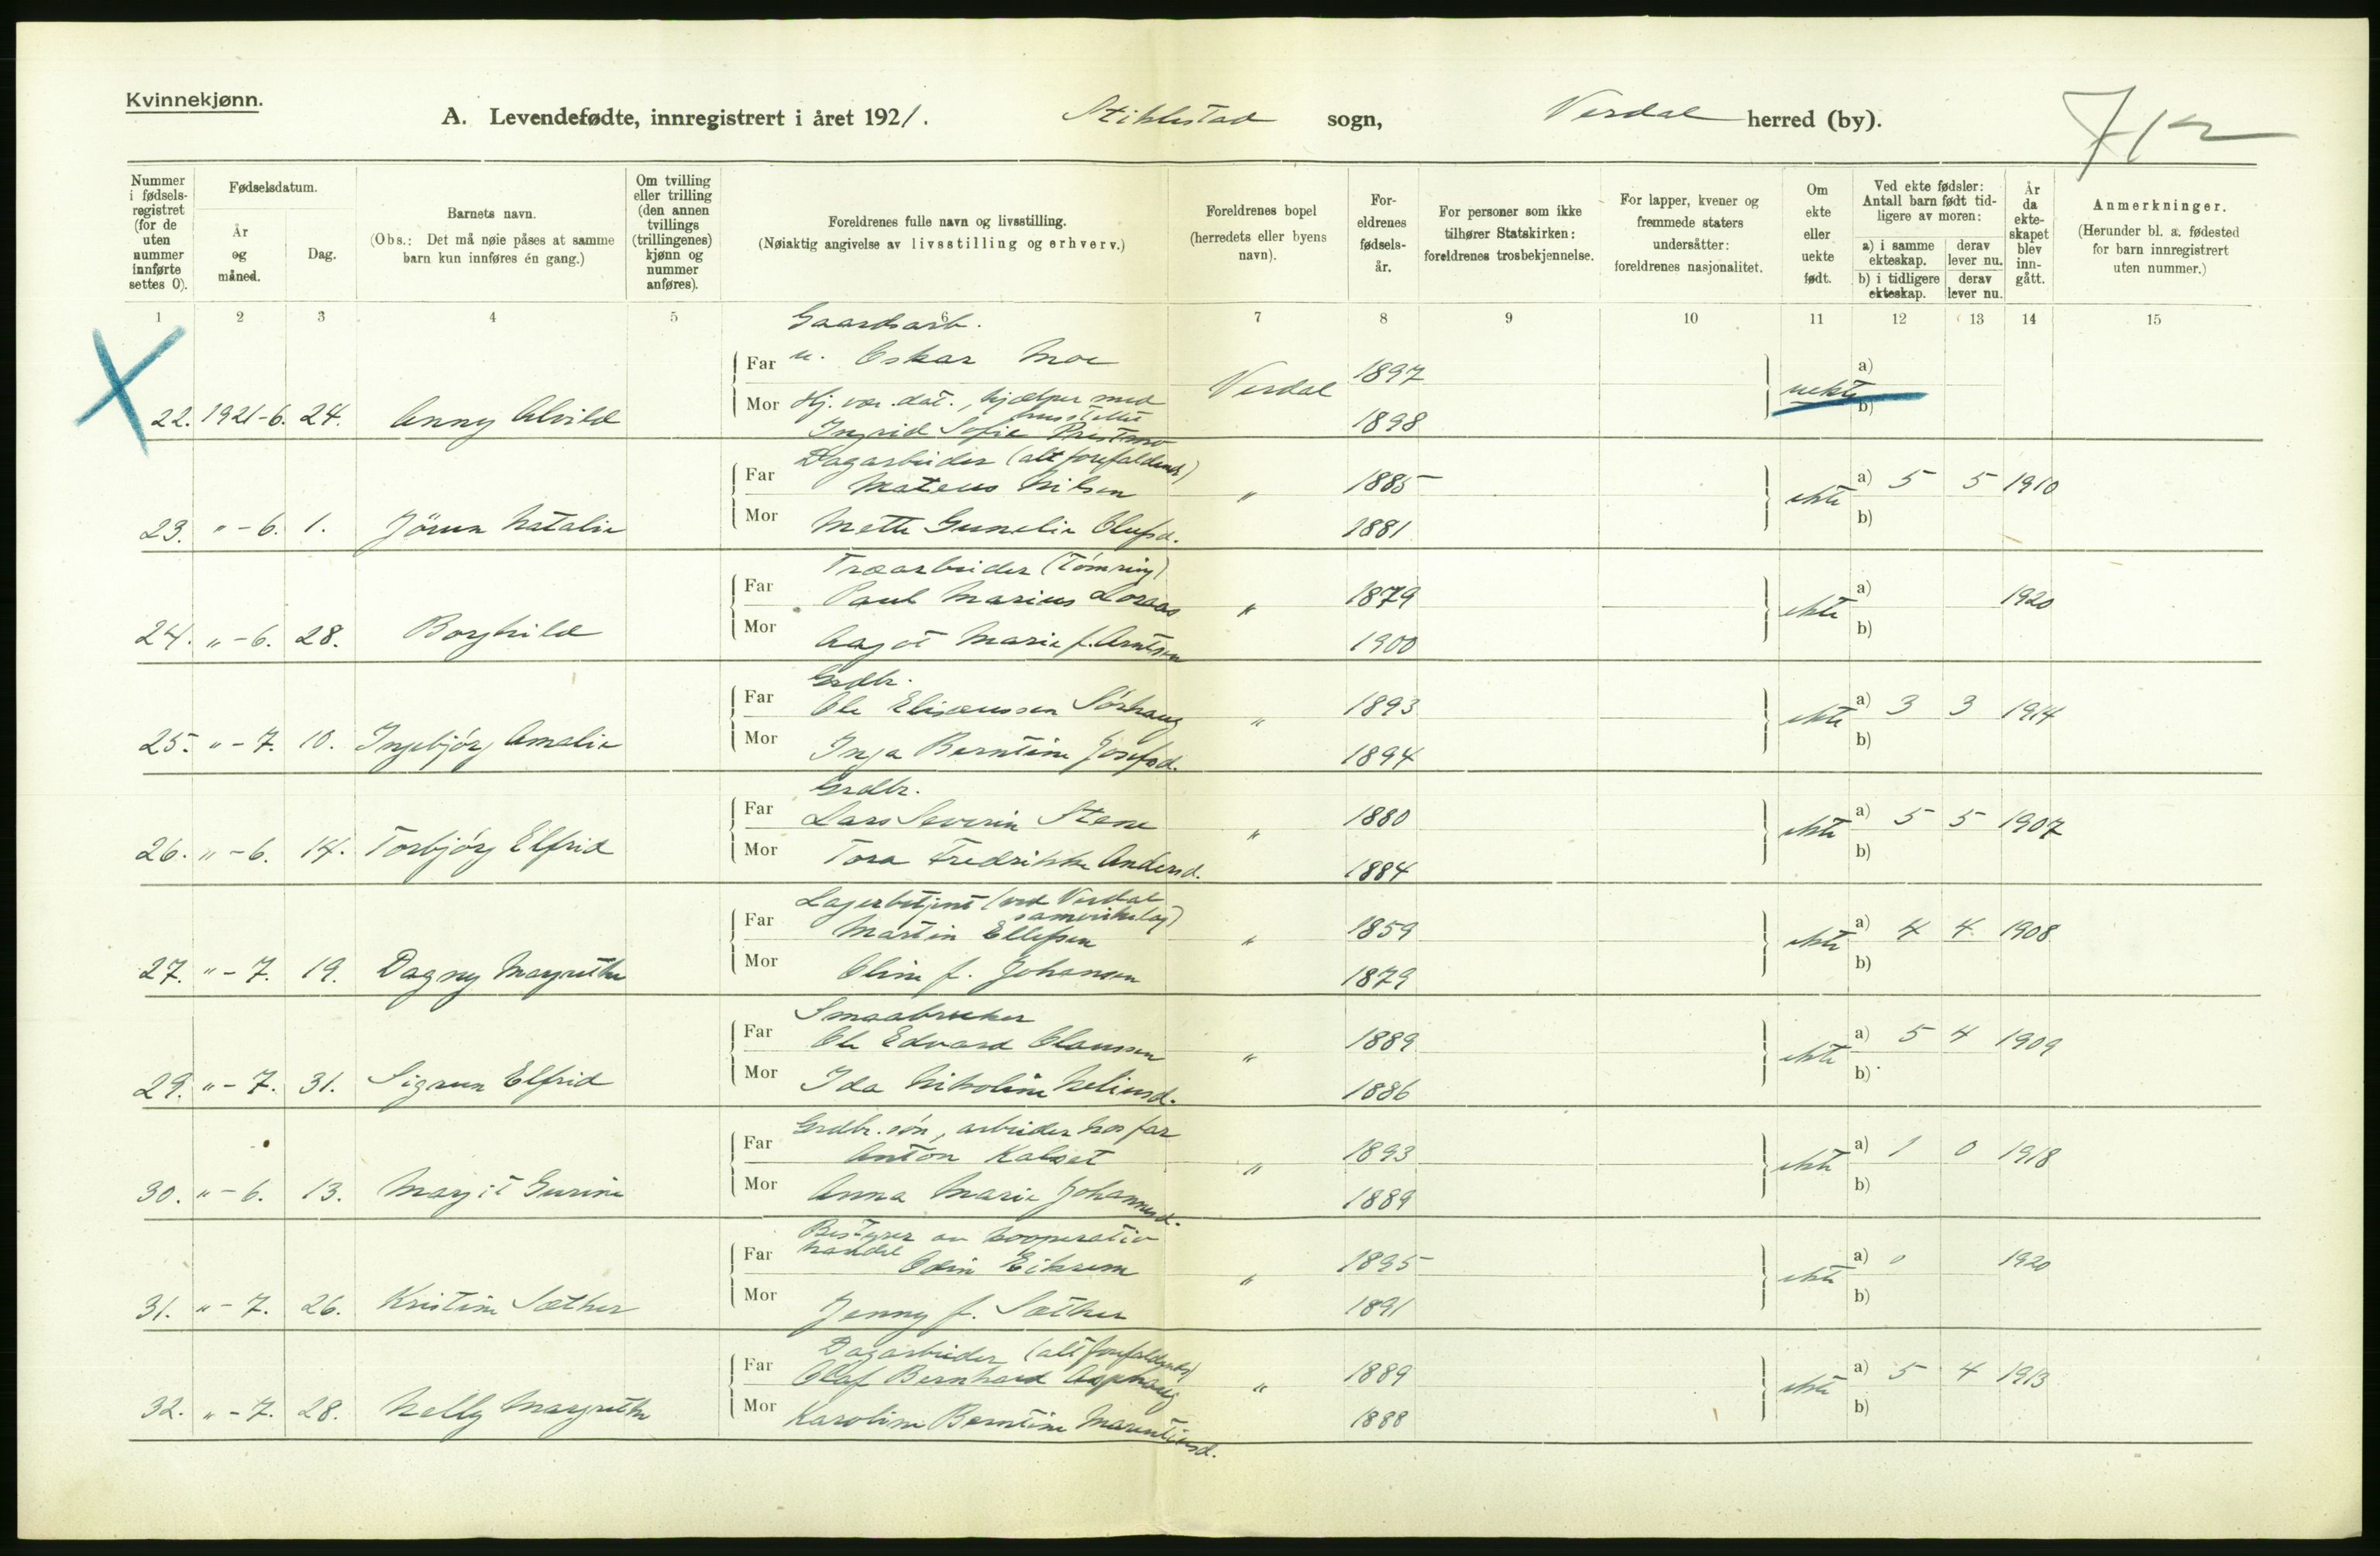 Kvinnekjønn.
A. Levendefødte, innregistrert i året 1921. Stiklestad sogn, Verdal herred (by).
7/12
Nummer i fødselsregistret (for de uten nummer innførte settes 0).
Fødselsdatum.
År og måned.
Dag.
Barnets navn.
(Obs.: Det må nøie påses at samme barn kun innføres én gang.)
Om tvilling eller trilling (den annen tvillings (trillingenes) kjønn og nummer anføres).
Foreldrenes fulle navn og livsstilling.
(Nøiaktig angivelse av livsstilling og erhverv.)
Foreldrenes bopel (herredets eller byens navn).
Foreldrenes fødselsår.
For personer som ikke tilhører Statskirken: foreldrenes trosbekjennelse.
For lapper, kvener og fremmede staters undersåtter: foreldrenes nasjonalitet.
Om ekte eller uekte født.
Ved ekte fødsler: Antall barn født tidligere av moren:
a) i samme ekteskap. derav lever nu.
b) i tidligere ekteskap. derav lever nu.
År da ekteskapet blev inngått.
Anmerkninger.
(Herunder bl. a. fødested for barn innregistrert uten nummer.)
1 2 3 4 5 6 7 8 9 10 11 12 13 14 15
Gaardsarb.
Far u. Oskar Moe Verdal 1897 uekte a)
Mor Hj. vær. dat., hjælper med husstellet
22. 1921-6. 24. Anny Alvild Ingrid Sofie Prestmo 1898 b)
Dagarbeider (alt forefaldende)
Far Mateus Nilsen " 1885 ekte a) 5 5 1910
23. "-6. 1. Jörun Natalie Mor Mette Gunelie Olufsd. 1881 b)
Træarbeider (Tömring)
Far Paul Marius Loraas " 1879 ekte a) 1920
24. "-6. 28. Borghild Mor Aagot Marie f. Arntsen 1900 b)
Grdbr.
Far Ole Elisæussen Sörhaug " 1893 ekte a) 3 3 1914
25. "-7. 10. Ingebjörg Amalie Mor Inga Berntine Josefsd. 1894 b)
Grdbr.
Far Lars Severin Stene " 1880 ekte a) 5 5 1907
26. "-6. 14. Torbjörg Elfrid Mor Tora Fredrikke Andersd. 1884 b)
Lagerbetjent (ved Verdal samvirkelag)
Far Martin Ellefsen " 1859 ekte a) 4 4 1908
27. "-7. 19. Dagny Margrethe Mor Oline f. Johansen 1879 b)
Smaabruker
Far Ole Edvard Olaussen " 1889 ekte a) 5 4 1909
29. "-7. 31. Sigrun Elfrid Mor Ida Nikoline Neliusd. 1886 b)
Grdbr. sön, arbeider hos far
Far Anton Kalset " 1893 ekte a) 1 0 1918
30. "-6. 13. Margit Gurine Mor Anna Marie Johannesd. 1889 b)
Bestyrer av kooperativ handel
Far Odin Eiksem " 1895 ekte a) 0 1920
31. "-7. 26. Kristine Sæther Mor Jenny f. Sæther 1891 b)
Dagarbeider (alt forefaldende)
Far Olaf Bernhard Asphaug " 1889 ekte a) 5 4 1913
32. "-7. 28. Nelly Margrethe Mor Karoline Berntine Marentiusd. 1888 b)